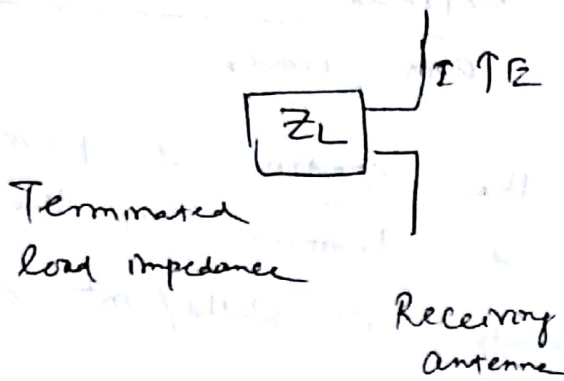 I ↑ E
ZL
Terminated
load impedance
Receiving
antenna